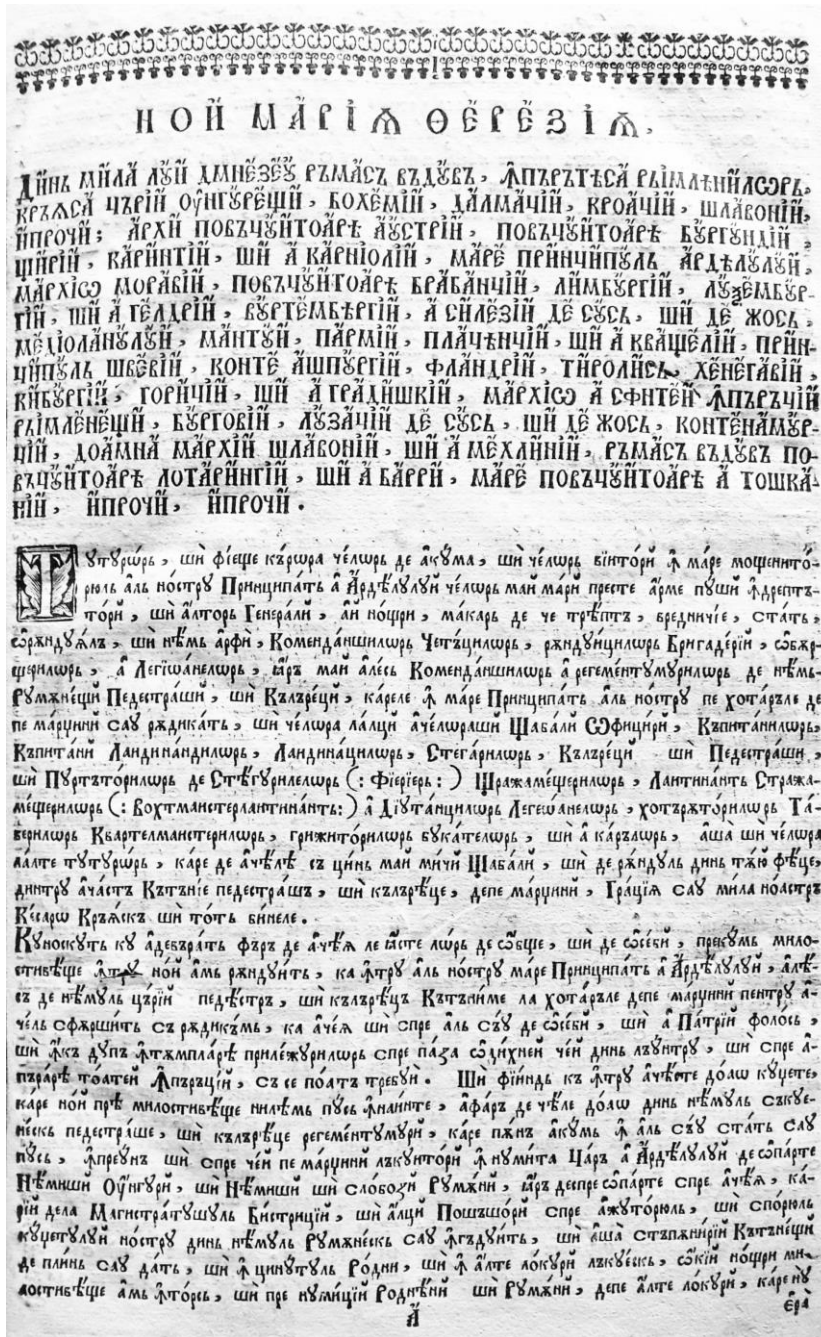 НОЙ МА́РІѦ ѲЕ́РЕ́ЗІѦ.
Ди́нь ми́ла лꙋ́й дмнезе́ꙋ ръма́съ въдꙋвъ, ꙟпъръ́тѣса ри́млѣнилѡрь,
Кръѧса̀ църі́й ᲂу҆нгꙋре́щи, бохе́мій, далма́чій, кроа́чій, шлаво́ній,
и҆прочи́; а҆рхи повъцꙋито́аре а҆ꙋ́стрій, повъцꙋито́аре бꙋргꙋ́ндій,
щи́рій, кари́нтій, ши а҆ карніо́лій, ма́ре при́нчипꙋль а҆рдѣ́лꙋлꙋй,
ма́рхісѡ мора́вій, повъцꙋито́аре браба́нчій, лимбꙋ́ргій, лꙋѯембꙋр-
гій, ши а҆ ге́лдрій, вꙋртембѣ́ргій, а҆ силе́зій де сꙋсь, ши де жось,
медіола́нꙋлꙋй, ма́нтꙋй, па́рмій, плаче́нчій, ши а҆ кваще́лій, при́н-
ципꙋль шве́вій, ко́нте а҆шпꙋ́ргій, фла́ндрій, тиро́лись, хенега́вій,
кибꙋ́ргій, гори́чій, ши а҆ гради́шкій, ма́рхісѡ а҆ сфи́нтей ꙟпъръ́чій
ри́млене́щи, бꙋрго́вій, лꙋза́чій де сꙋсь, ши де жось, контенамꙋ́р-
цій, доа́мна ма́рхій шлаво́ній, ши а҆ мехли́ній, ръма́съ въдꙋвъ по-
въцꙋито́аре лотари́нгій, ши а҆ ба́рри, ма́ре повъцꙋито́аре а҆ тошка́-
ній, и҆прочи́, и҆прочи́.
Тꙋтꙋрѡрь, ши фіеще ка́рѡра че́лѡрь де а҆кꙋма, ши че́лѡрь віито́ри ꙟ ма́ре мощенито́-
рюль а҆ль но́стрꙋ Принципа́тъ а҆ А҆рдѣ́лꙋлꙋй че́лѡрь май ма́ри престе а҆рме пꙋши ꙟдрептъ-
то́ри, ши а҆лторь Генера́ли, а҆й но́щри, ма́карь де че трѣ́птъ, вредничіе, ста́тъ,
ѡ҆рѫндꙋѧ́лъ, ши нѣ́мь а҆рфи, Коменда́ншилѡрь Чете́цилѡрь, рѫндꙋи́цилѡрь Бригаде́рій, ѡ҆бѫр-
щерилѡрь, а҆ Легіѡ́анелѡрь, ꙗ҆ръ май а҆ле́сь Коменда́ншилѡрь а҆ регементꙋмꙋрилѡрь де нѣ́мь-
Рꙋмѫне́щи Педестра́ши, ши Кълъре́ци, ка́реле ꙟ ма́ре Принципа́тъ а҆ль но́стрꙋ пе хота́ръле де
пе ма́рџини саꙋ рѫдика́тъ, ши че́лѡра ла́лци а҆че́лѡраши Шаба́ли Ѡ҆фици́ри, Къпита́нилѡрь,
Къпита́ни Ландина́ндилѡрь, Ландина́цилѡрь, Стега́рилѡрь, Кълъре́ци ши Педестра́ши,
ши Пꙋртъто́рилѡрь де Стѣ́гꙋрилелѡрь (: Фіеріерь :) Щражаме́щерилѡрь, Лаитина́нть Стража-
ме́щерилѡрь (: Вохтмаистерлантина́нть :) а҆ Діꙋта́нцилѡрь Легеѡ́анелѡрь, хотъръто́рилѡрь Та́-
берилѡрь Квартелмаистерилѡрь, грижито́рилѡрь бꙋка́телѡрь, ши а҆ ка́рълѡрь, а҆ша ши че́лѡра
ла́лте тꙋтꙋрѡрь, ка́ре де а҆че́лѣ съ ци́нь май ми́чи Шаба́ли, ши де рѫндꙋль динь тѫю фѣце,
динтрꙋ а҆ча́стъ Кътъніе педестра́шъ, ши кълърѣце, депе ма́рџини, Гра́ціѧ саꙋ ми́ла ноа́стръ
Ке́сарѡ Кръѧ́скъ ши то́тъ би́неле.
Кꙋноскꙋтъ кꙋ а҆девъра́тъ фъръ де а҆че́ѧ ле ꙗ҆сте лѡрь де ѡ҆бще, ши де ѡ҆се́би, прекꙋмь мило-
стивѣще ꙟтрꙋ но́й а҆мь рѫндꙋи́тъ, ка ꙟтрꙋ а҆ль но́стрꙋ ма́ре Принципа́тъ а҆ А҆рдѣ́лꙋлꙋй, а҆лѣ́-
съ де нѣ́мꙋль цъ́рій педе́стръ, ши кълърѣцъ Кътъни́ме ла хота́ръле депе ма́рџини пентрꙋ а҆-
че́ль сфѫрши́тъ съ рѫдика́мь, ка а҆че́ѧ ши спре а҆ль съꙋ де ѡ҆се́би, ши а҆ Па́трій фоло́сь,
ши ꙟкъ дꙋпъ ꙟтѫмпла́рѣ прилежꙋрилѡрь спре па́за ѡ҆ди́хней че́й динь лъꙋнтрꙋ, ши спре а҆-
пъра́рѣ то́атей ꙟпъръ́цій, съ се по́атъ требꙋи́. Ши фіи́ндь къ ꙟтрꙋ а҆че́сте до́аѡ кꙋцете,
ка́ре но́й прѣ милостивѣ́ще ни́лѣмь пꙋсь ꙟнаи́нте, а҆фа́ръ де че́ле до́аѡ динь нѣ́мꙋль съкꙋе-
нескъ педестра́ше, ши кълърѣце регементꙋмꙋри, ка́ре пѫнъ а҆кꙋмь ꙟ а҆ль съꙋ ста́тъ саꙋ
пꙋсь, ꙟпреꙋнъ ши спре че́й пе ма́рџини лъкꙋито́ри ꙟ нꙋми́та Царъ а҆ А҆рдѣ́лꙋлꙋй де ѡ҆парте
Нѣ́миши Оу҆нгꙋри, ши Нѣ́миши ши сло́бози Рꙋмѫ́ни, ꙗ҆ръ деспре ѡ҆парте спре а҆че́ѧ, ка́-
рій дела Магистра́тꙋшꙋль Би́стрицій, ши а҆лци Пошъшо́ри спре а҆жꙋто́рюль, ши спо́рюль
кꙋџетꙋлꙋй но́стрꙋ динь нѣ́мꙋль Рꙋмѫне́скъ саꙋ ꙟгъдꙋи́тъ, ши а҆ша стъпѫни́рій Кътъне́щи
де пли́нь саꙋ да́тъ, ши ꙟ цинꙋтꙋль Ро́дни, ши ꙟ а҆лте ло́кꙋри лъкꙋе́скъ, ѡ҆ки́й но́щри ми-
лостивѣще а҆мь ꙟто́рсь, ши пре нꙋми́ций Роднѣ́ни ши Рꙋмѫ́ни, депе а҆лте ло́кꙋри, ка́ре нꙋ
А҆
е҆ра̀